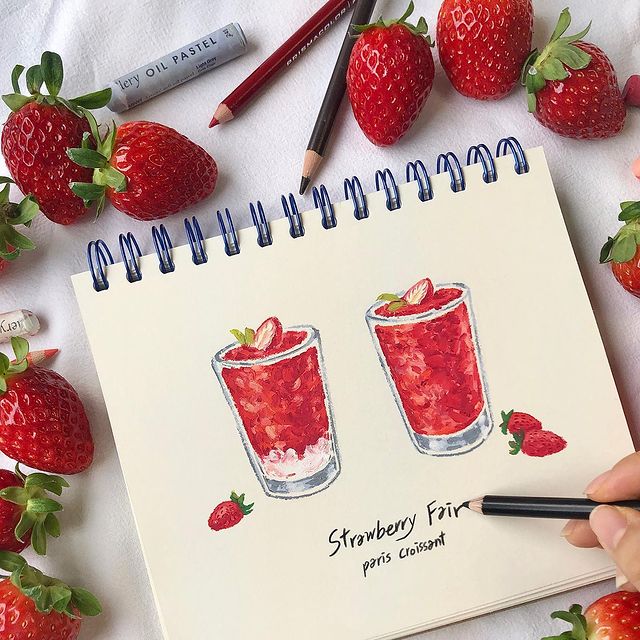 llery OIL PASTEL
PRISMACOLOR
Strawberry Fair
paris croissant